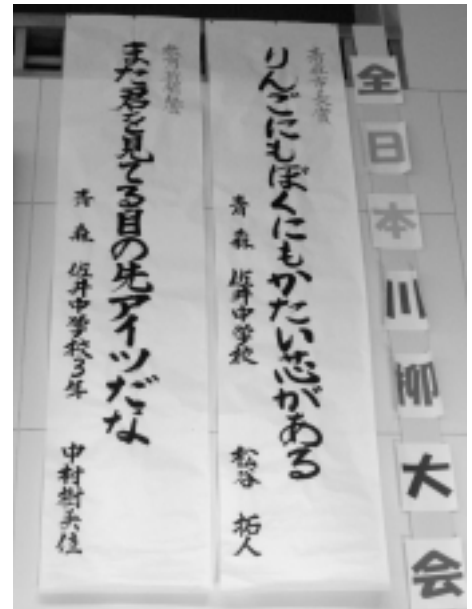 全日本川柳大会
青森市長賞
りんごにもぼくにもかたい芯がある
青森 佐井中学校 松谷 拓人
また君を見てる目の先アイツだな
青森 佐井中学校3年